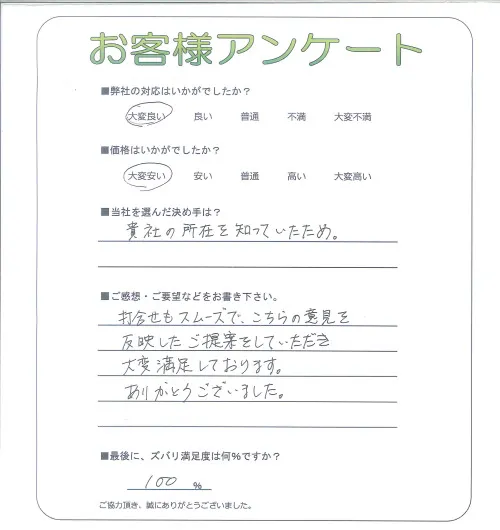 お客様アンケート
■弊社の対応はいかがでしたか?
大変良い 良い 普通 不満 大変不満
■価格はいかがでしたか?
大変安い 安い 普通 高い 大変高い
■当社を選んだ決め手は?
貴社の所在を知っていたため。
■ご感想・ご要望などをお書き下さい。
打合せもスムーズで、こちらの意見を
反映したご提案をしていただき
大変満足しております。
ありがとうございました。
■最後に、ズバリ満足度は何%ですか?
100 %
ご協力頂き、誠にありがとうございました。